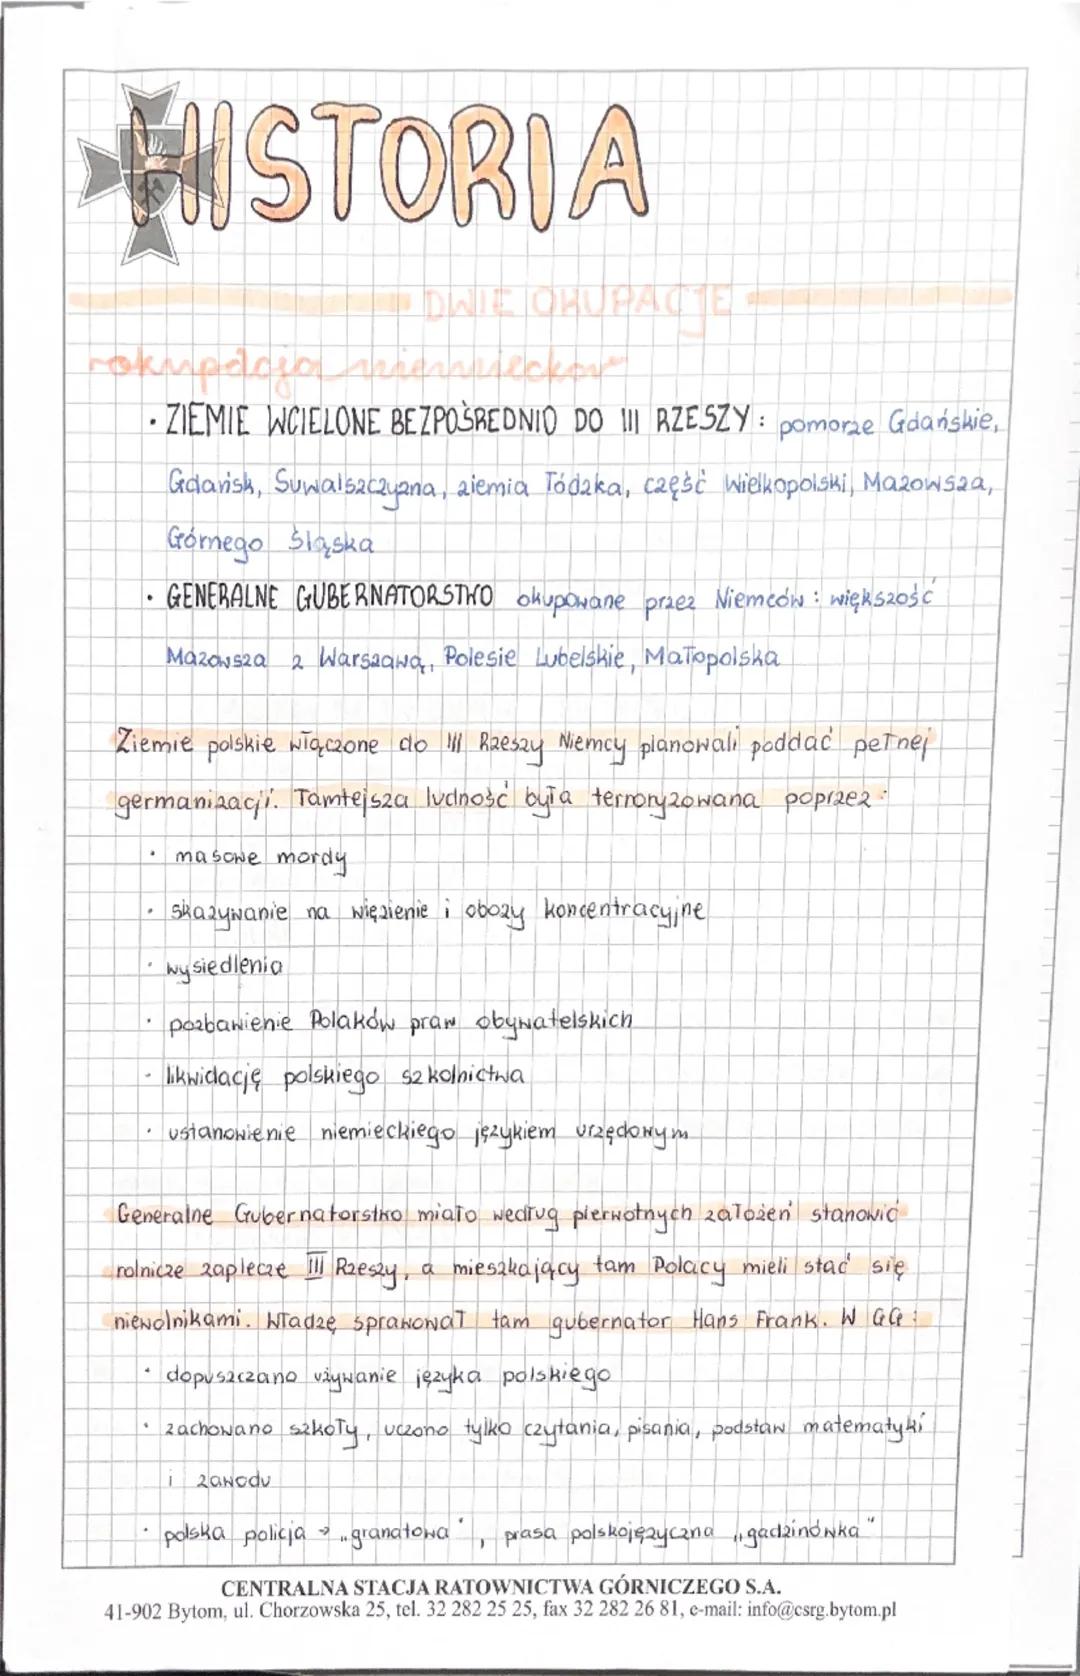 HISTORIA
DWIE OKUPACJE
okupacja niemiecka
· ZIEMIE WCIELONE BEZPOŚREDNIO DO III RZESZY: pomorze Gdańskie,
Gdańsk, Suwalszczyzna, ziemia Łódzka, część Wielkopolski, Mazowsza,
Górnego Śląska
· GENERALNE GUBERNATORSTWO okupowane przez Niemców: większość
Mazowsza z Warszawą, Polesie Lubelskie, Małopolska
Ziemie polskie włączone do III Rzeszy Niemcy planowali poddać pełnej
germanizacji. Tamtejsza ludność była terroryzowana poprzez:
· masowe mordy
· skazywanie na więzienie i obozy koncentracyjne
· wysiedlenia
· pozbawienie Polaków praw obywatelskich
· likwidację polskiego szkolnictwa
· ustanowienie niemieckiego językiem urzędowym
Generalne Gubernatorstwo miało według pierwotnych założeń stanowić
rolnicze zaplecze III Rzeszy, a mieszkający tam Polacy mieli stać się
niewolnikami. Władzę sprawował tam gubernator Hans Frank. W GG:
· dopuszczano używanie języka polskiego
· zachowano szkoły, uczono tylko czytania, pisania, podstaw matematyki
i zawodu
· polska policja → „granatowa", prasa polskojęzyczna „gadzinówka"
CENTRALNA STACJA RATOWNICTWA GÓRNICZEGO S.A.
41-902 Bytom, ul. Chorzowska 25, tel. 32 282 25 25, fax 32 282 26 81, e-mail: info@csrg.bytom.pl